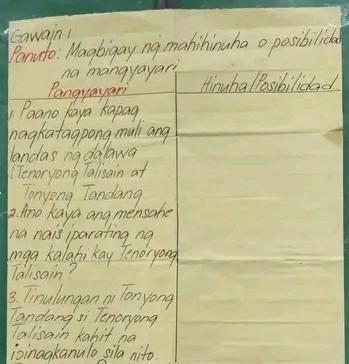 Gawain 1
Panuto: Magbigay ng mahihinuha o posibilidad
na mangyayari
Pangyayari
Hinuha/Posibilidad
1. Paano kaya kapag
nagkatagpong muli ang
landas ng dalawa
(Tenoryong Talisain at
Tonyong Tandang
2. Ano kaya ang mensahe
na nais iparating ng
mga kalahi kay Tenoryong
Talisain?
3. Tinulungan ni Tonyong
Tandang si Tenoryong
Talisain kahit na
ipinagkanulo sila nito.